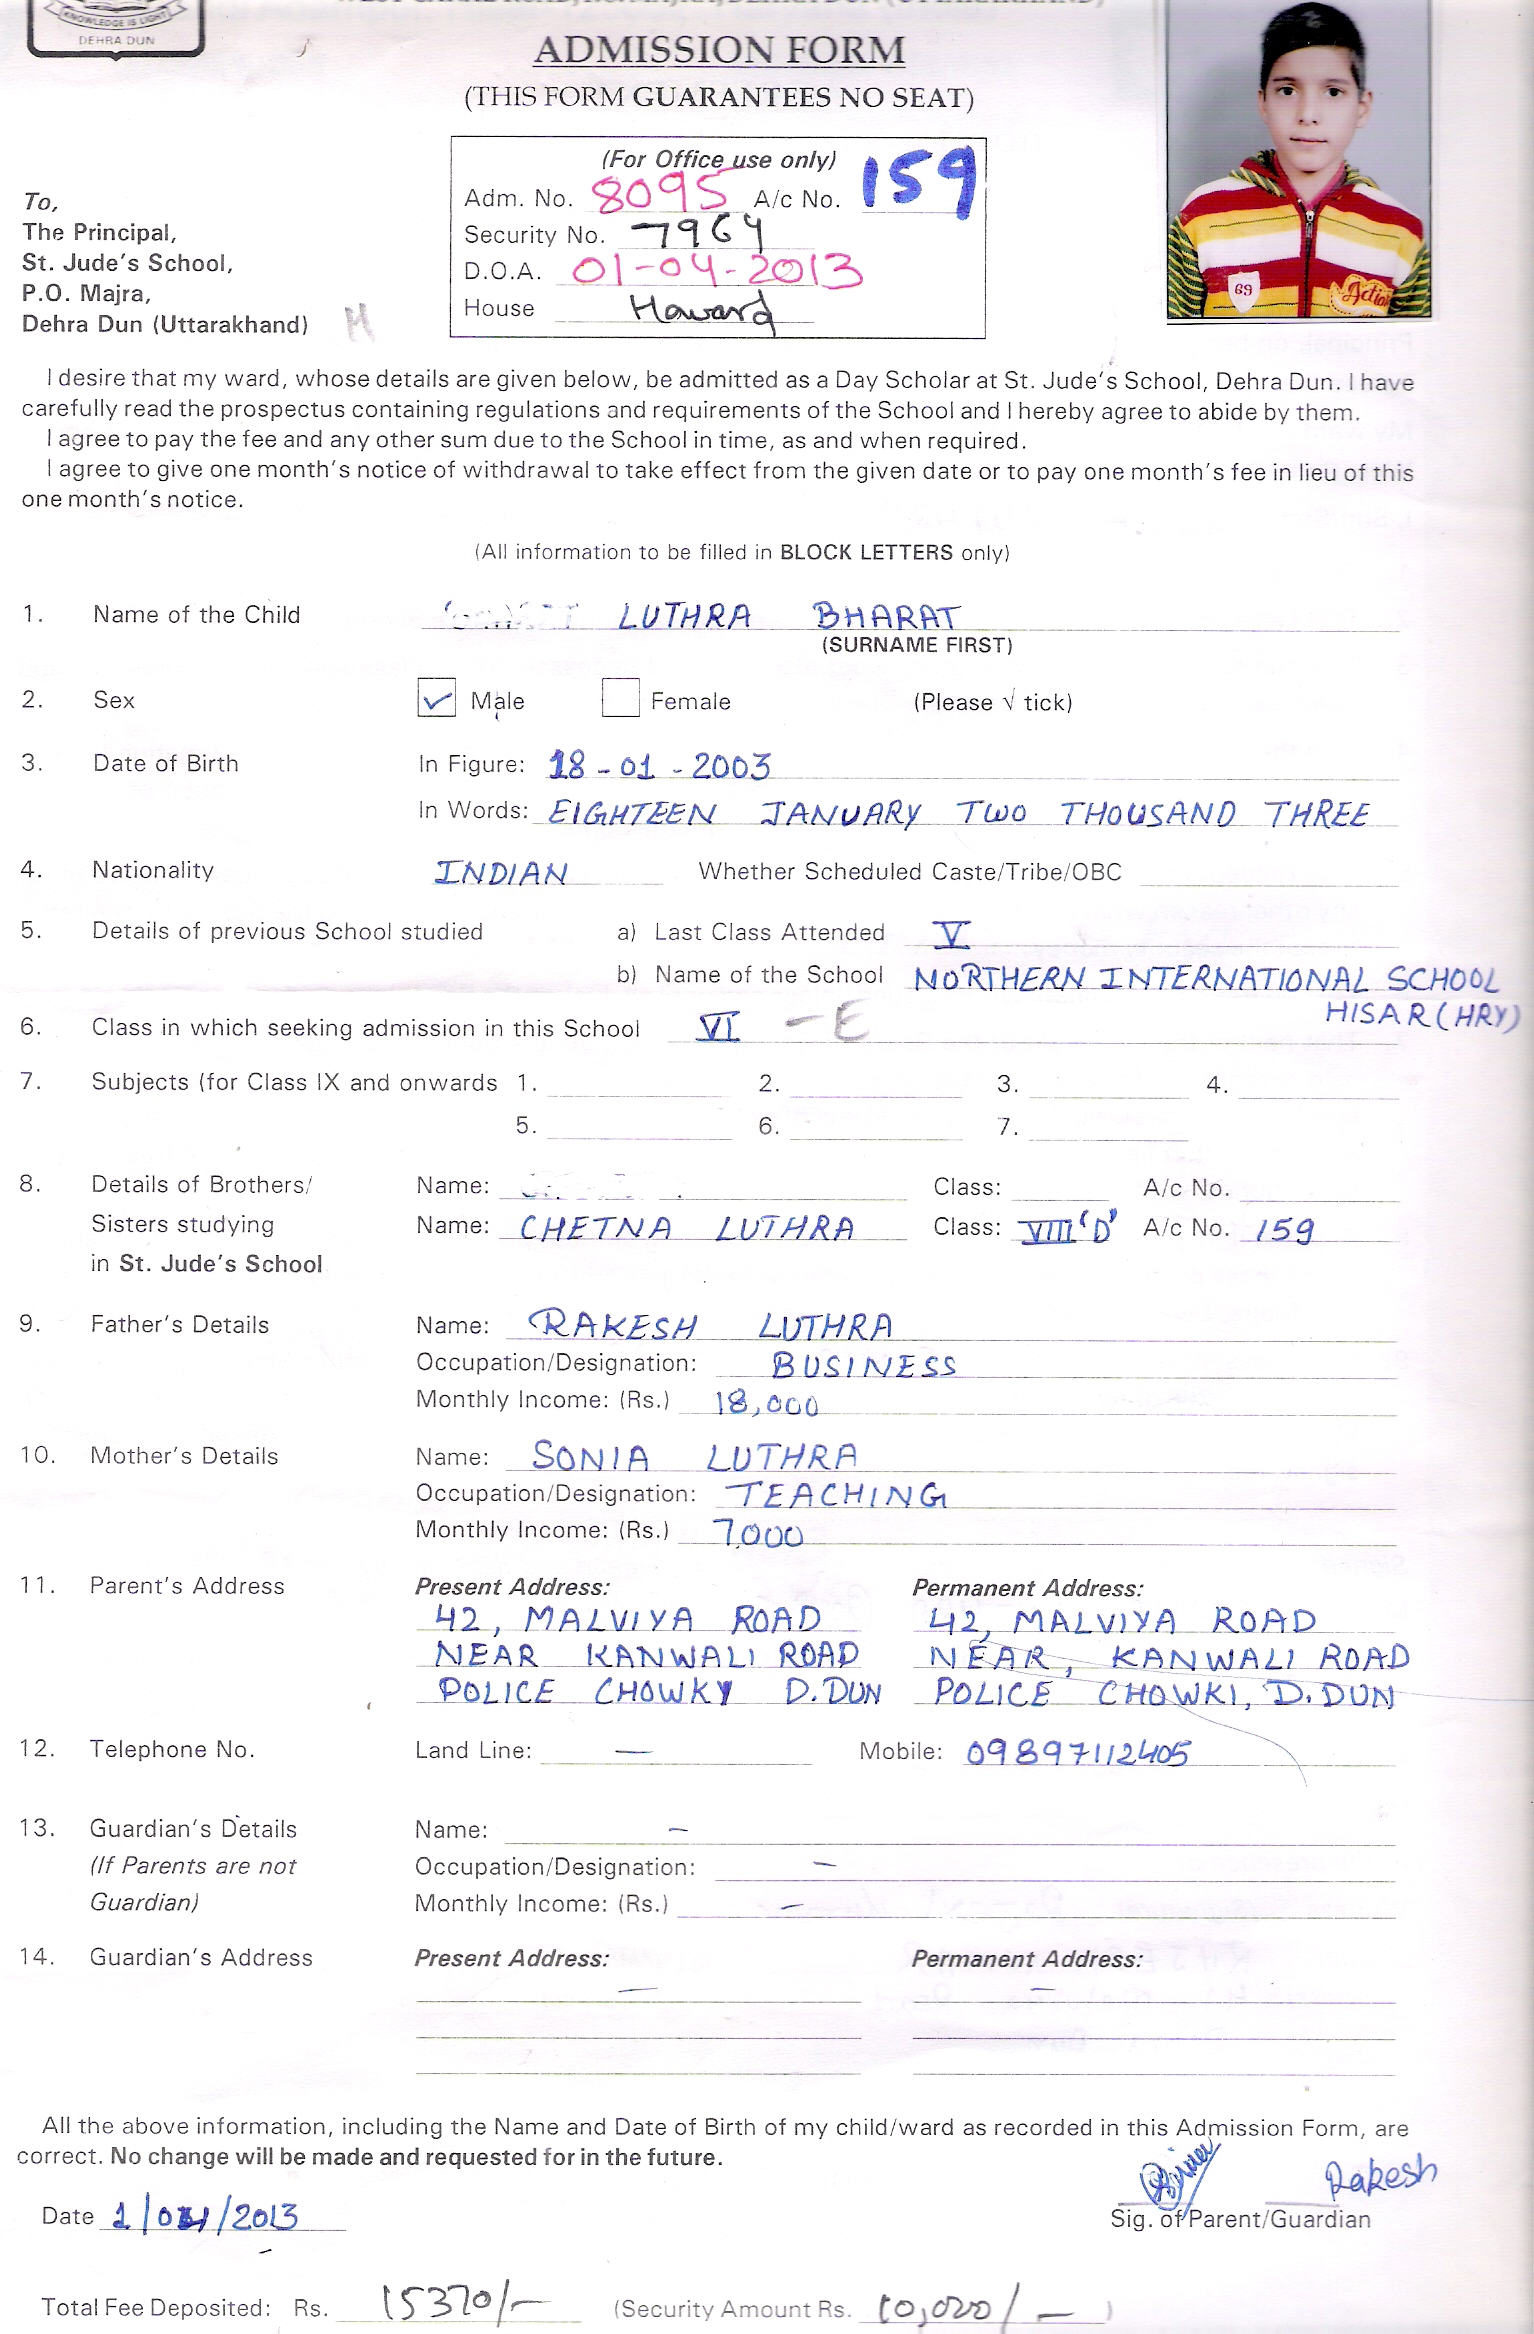 KNOWLEDGE IS LIGHT
DEHRA DUN
ADMISSION FORM
(THIS FORM GUARANTEES NO SEAT)
(For Office use only)
Adm. No. 8095 A/c No. 159
Security No. 7964
D.O.A. 01-04-2013
House Howard
69
Action
To,
The Principal,
St. Jude's School,
P.O. Majra,
Dehra Dun (Uttarakhand) H
I desire that my ward, whose details are given below, be admitted as a Day Scholar at St. Jude's School, Dehra Dun. I have
carefully read the prospectus containing regulations and requirements of the School and I hereby agree to abide by them.
I agree to pay the fee and any other sum due to the School in time, as and when required.
I agree to give one month's notice of withdrawal to take effect from the given date or to pay one month's fee in lieu of this
one month's notice.
(All information to be filled in BLOCK LETTERS only)
1. Name of the Child LUTHRA BHARAT
(SURNAME FIRST)
2. Sex ✓ Male Female (Please √ tick)
3. Date of Birth In Figure: 18-01-2003
In Words: EIGHTEEN JANUARY TWO THOUSAND THREE
4. Nationality INDIAN Whether Scheduled Caste/Tribe/OBC
5. Details of previous School studied a) Last Class Attended V
b) Name of the School NORTHERN INTERNATIONAL SCHOOL
HISAR (HRY)
6. Class in which seeking admission in this School VI - E
7. Subjects (for Class IX and onwards 1. 2. 3. 4.
5. 6. 7.
8. Details of Brothers/ Name: Class: A/c No.
Sisters studying Name: CHETNA LUTHRA Class: VIII 'D' A/c No. 159
in St. Jude's School
9. Father's Details Name: RAKESH LUTHRA
Occupation/Designation: BUSINESS
Monthly Income: (Rs.) 18,000
10. Mother's Details Name: SONIA LUTHRA
Occupation/Designation: TEACHING
Monthly Income: (Rs.) 7,000
11. Parent's Address Present Address: Permanent Address:
42, MALVIYA ROAD 42, MALVIYA ROAD
NEAR KANWALI ROAD NEAR, KANWALI ROAD
POLICE CHOWKY D.DUN POLICE CHOWKI, D.DUN
12. Telephone No. Land Line: — Mobile: 09897112405
13. Guardian's Details Name: —
(If Parents are not Occupation/Designation: —
Guardian) Monthly Income: (Rs.) —
14. Guardian's Address Present Address: Permanent Address:
— —
All the above information, including the Name and Date of Birth of my child/ward as recorded in this Admission Form, are
correct. No change will be made and requested for in the future.
Rakesh
Date 1/04/2013 Sig. of Parent/Guardian
Total Fee Deposited: Rs. 15370/- (Security Amount Rs. 10,000/- )